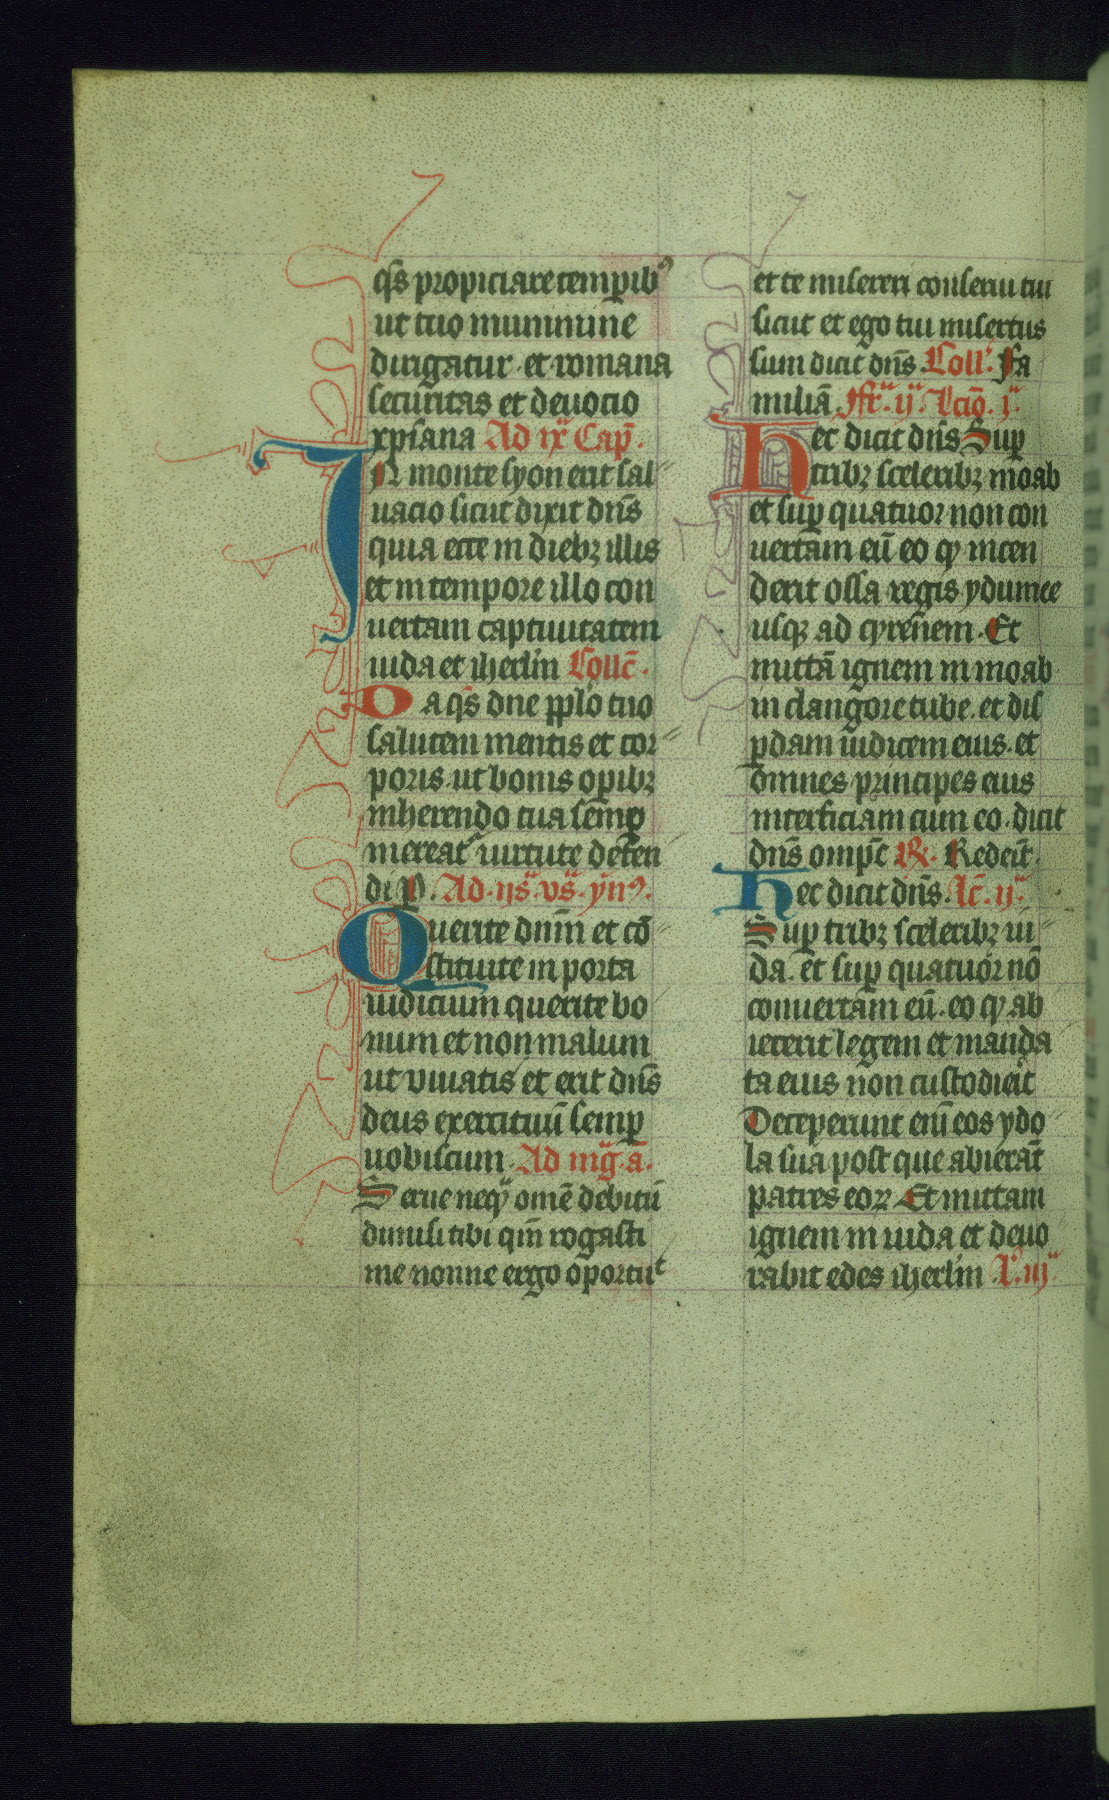 q̄s propiciare temp̲ib⁹
ut tuo munimine
dirigatur et romana
securitas et deuocio
xp̄iana Ad ixᵃ Cap̄.
IN monte syon erit sal
uacio sicut dixit dn̄s
quia ecce in diebꝫ illis
et in tempore illo con
uertam captiuitatem
iuda et ih̄erl̄m Collc̄.
Da q̄s dn̄e ꝓpl̄o tuo
salutem mentis et cor
poris. ut bonis oꝑibꝫ
inherendo tua semꝑ
mereat᷑ uirtute defen
di P. Ad ijᵃˢ vᵃˢ ymᵒ.
Querite dn̄m et cō
stituite in porta
iudicium querite bo
num et non malum
ut viuatis et erit dn̄s
deus exercituū semꝑ
uobiscum. Ad mḡ a̅.
Serue neq̄ omē debitū
dimisi tibi qm̄ rogasti
me nonne ergo oportuit
et te misereri conserui tui
sicut et ego tui misertus
sum dicit dn̄s. Coll'. Fa
miliā. ffrᵃ. ijᵃ. lcīo. jᵃ.
Hec dicit dn̄s Suꝑ
tribꝫ sceleribꝫ moab
et suꝑ quatuor non con
uertam eū eo ꝙ incen
derit ossa regis ydumee
usqꝫ ad cyrenem. Et
mittā ignem in moab
in clangore tube. et dis
ꝑdam iudicem eius. et
omnes principes eius
interficiam cum eo. dicit
dn̄s omp̄c R. Redeīt.
Hec dicit dn̄s. lc̄. ijᵃ.
Suꝑ tribꝫ sceleribꝫ iu
da. et suꝑ quatuor nō
conuertam eū. eo ꝙ ab
iecerit legem et manda
ta eius non custodieīt
Deceperunt eni̅ eos ydo
la sua post que abierāt
patres eoꝝ. Et mittam
ignem in iuda et deuo
rabit edes ih̄erl̄m l'. iijᵃ